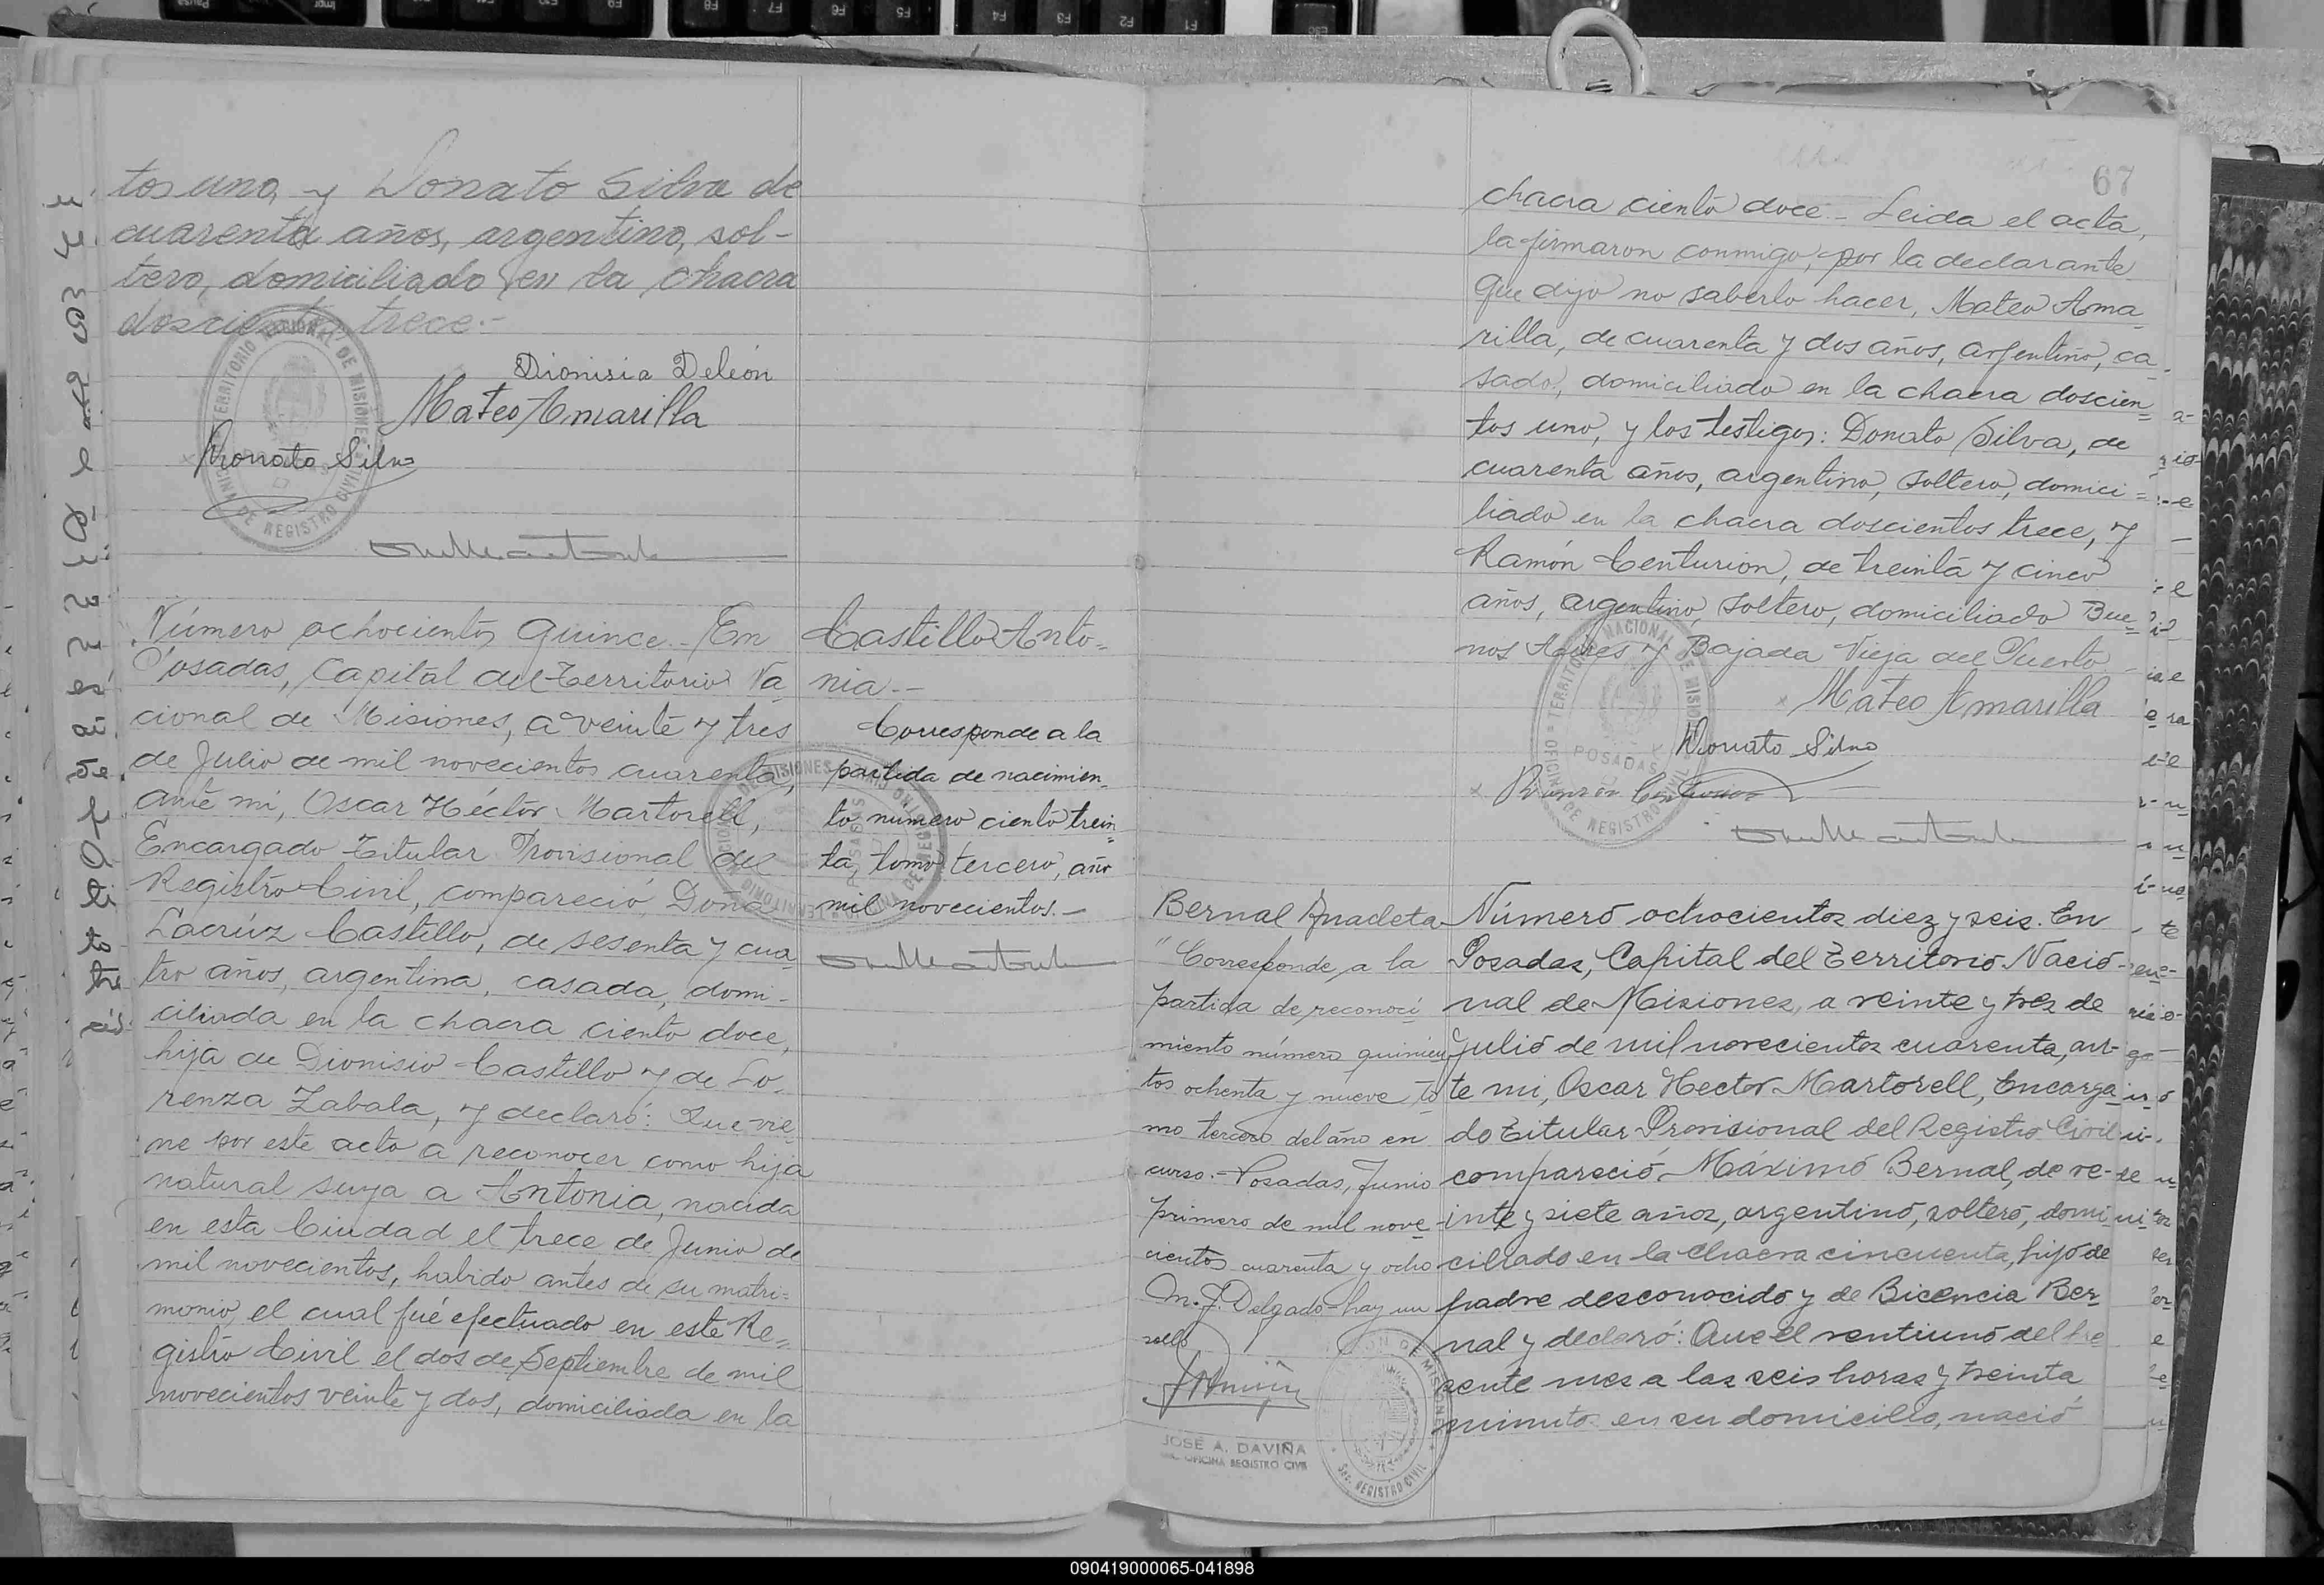 tos uno, y Donato Silva de
cuarenta años, argentino, sol-
tero, domiciliado en la chacra
doscientos trece.-
Dionisia Deleón
Mateo Amarilla
Donato Silva
Número ochocientos quince. En
Posadas, Capital del Territorio Na
cional de Misiones, a veinte y tres
de Julio de mil novecientos cuarenta,
ante mí, Oscar Héctor Martorell,
Encargado Titular Provisional del
Registro Civil, compareció, Doña
Lacrúz Castillo, de sesenta y cua-
tro años, argentina, casada, domi-
ciliada en la chacra ciento doce,
hija de Dionisio Castillo y de Lo-
renza Zabala, y declaró: Que vie-
ne por este acto a reconocer como hija
natural suya a Antonia, nacida
en esta Ciudad el trece de Junio de
mil novecientos, habido antes de su matri=
monio, el cual fué efectuado en este Re=
gistro Civil el dos de Septiembre de mil
novecientos veinte y dos, domiciliada en la
Castillo Anto=
nia.-
Corresponde a la
partida de nacimien-
to número ciento trein
ta, tomo tercero, año
mil novecientos.-
67
chacra ciento doce - Leida el acta,
la firmaron conmigo, por la declarante
que dijo no saberlo hacer, Mateo Ama
rilla, de cuarenta y dos años, argentino, ca-
sado, domiciliado en la chacra doscien=
tos uno, y los testigos: Donato Silva, de
cuarenta años, argentino, soltero, domici=
liado en la chacra doscientos trece, y
Ramón Centurion, de treinta y cinco
años, argentino, soltero, domiciliado Bue=
nos Aires y Bajada Vieja del Puerto
Mateo Amarilla
Donato Silva
Ramón Centurion
POSADAS
Bernal Anacleta
"Corresponde a la
partida de reconoci
miento número quinien
tos ochenta y nueve, to
mo tercero del año en
curso.- Posadas, Junio
primero de mil nove
cientos cuarenta y ocho
M. J. Delgado - hay un
sello
JOSÉ A. DAVIÑA
OFICINA REGISTRO CIVIL
Número ochocientos diez y seis. En
Posadas, Capital del Territorio Nacio-
nal de Misiones, a veinte y tres de
Julio de mil novecientos cuarenta, an-
te mi, Oscar Hector Martorell, Encarga-
do Titular Provisional del Registro Civil
compareció, Máximo Bernal, de ve-
inte y siete años, argentino, soltero, domi
ciliado en la chacra cincuenta, hijo de
padre desconocido y de Bicencia Ber-
nal y declaró: Que el ventiuno del pre
sente mes a las seis horas y treinta
minutos en su domicilio, nació
090419000065-041898